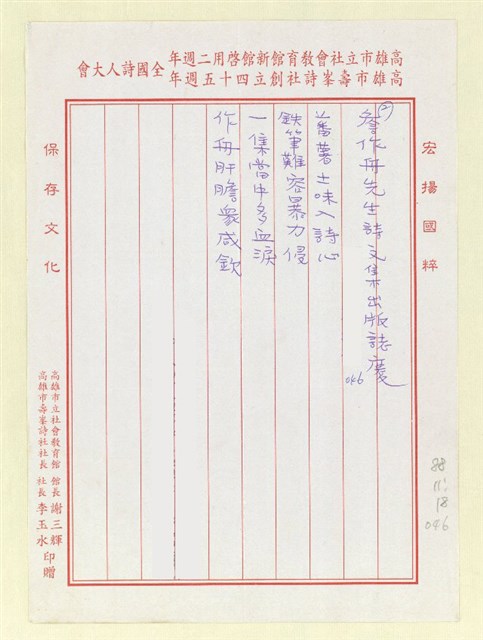 高雄市立社會教育館新館啓用二週年
高雄市壽峯詩社創立四十五週年
全國詩人大會
宏揚國粹
(2)
詹作舟先生詩文集出版誌慶
046
蕃薯土味入詩心
鉄筆難容暴力侵
一集當中多血淚
作舟肝膽眾咸欽
保存文化
高雄市立社會教育館 館長 謝三輝
高雄市壽峯詩社社長 社長 李玉水 印贈
88
11
18
046